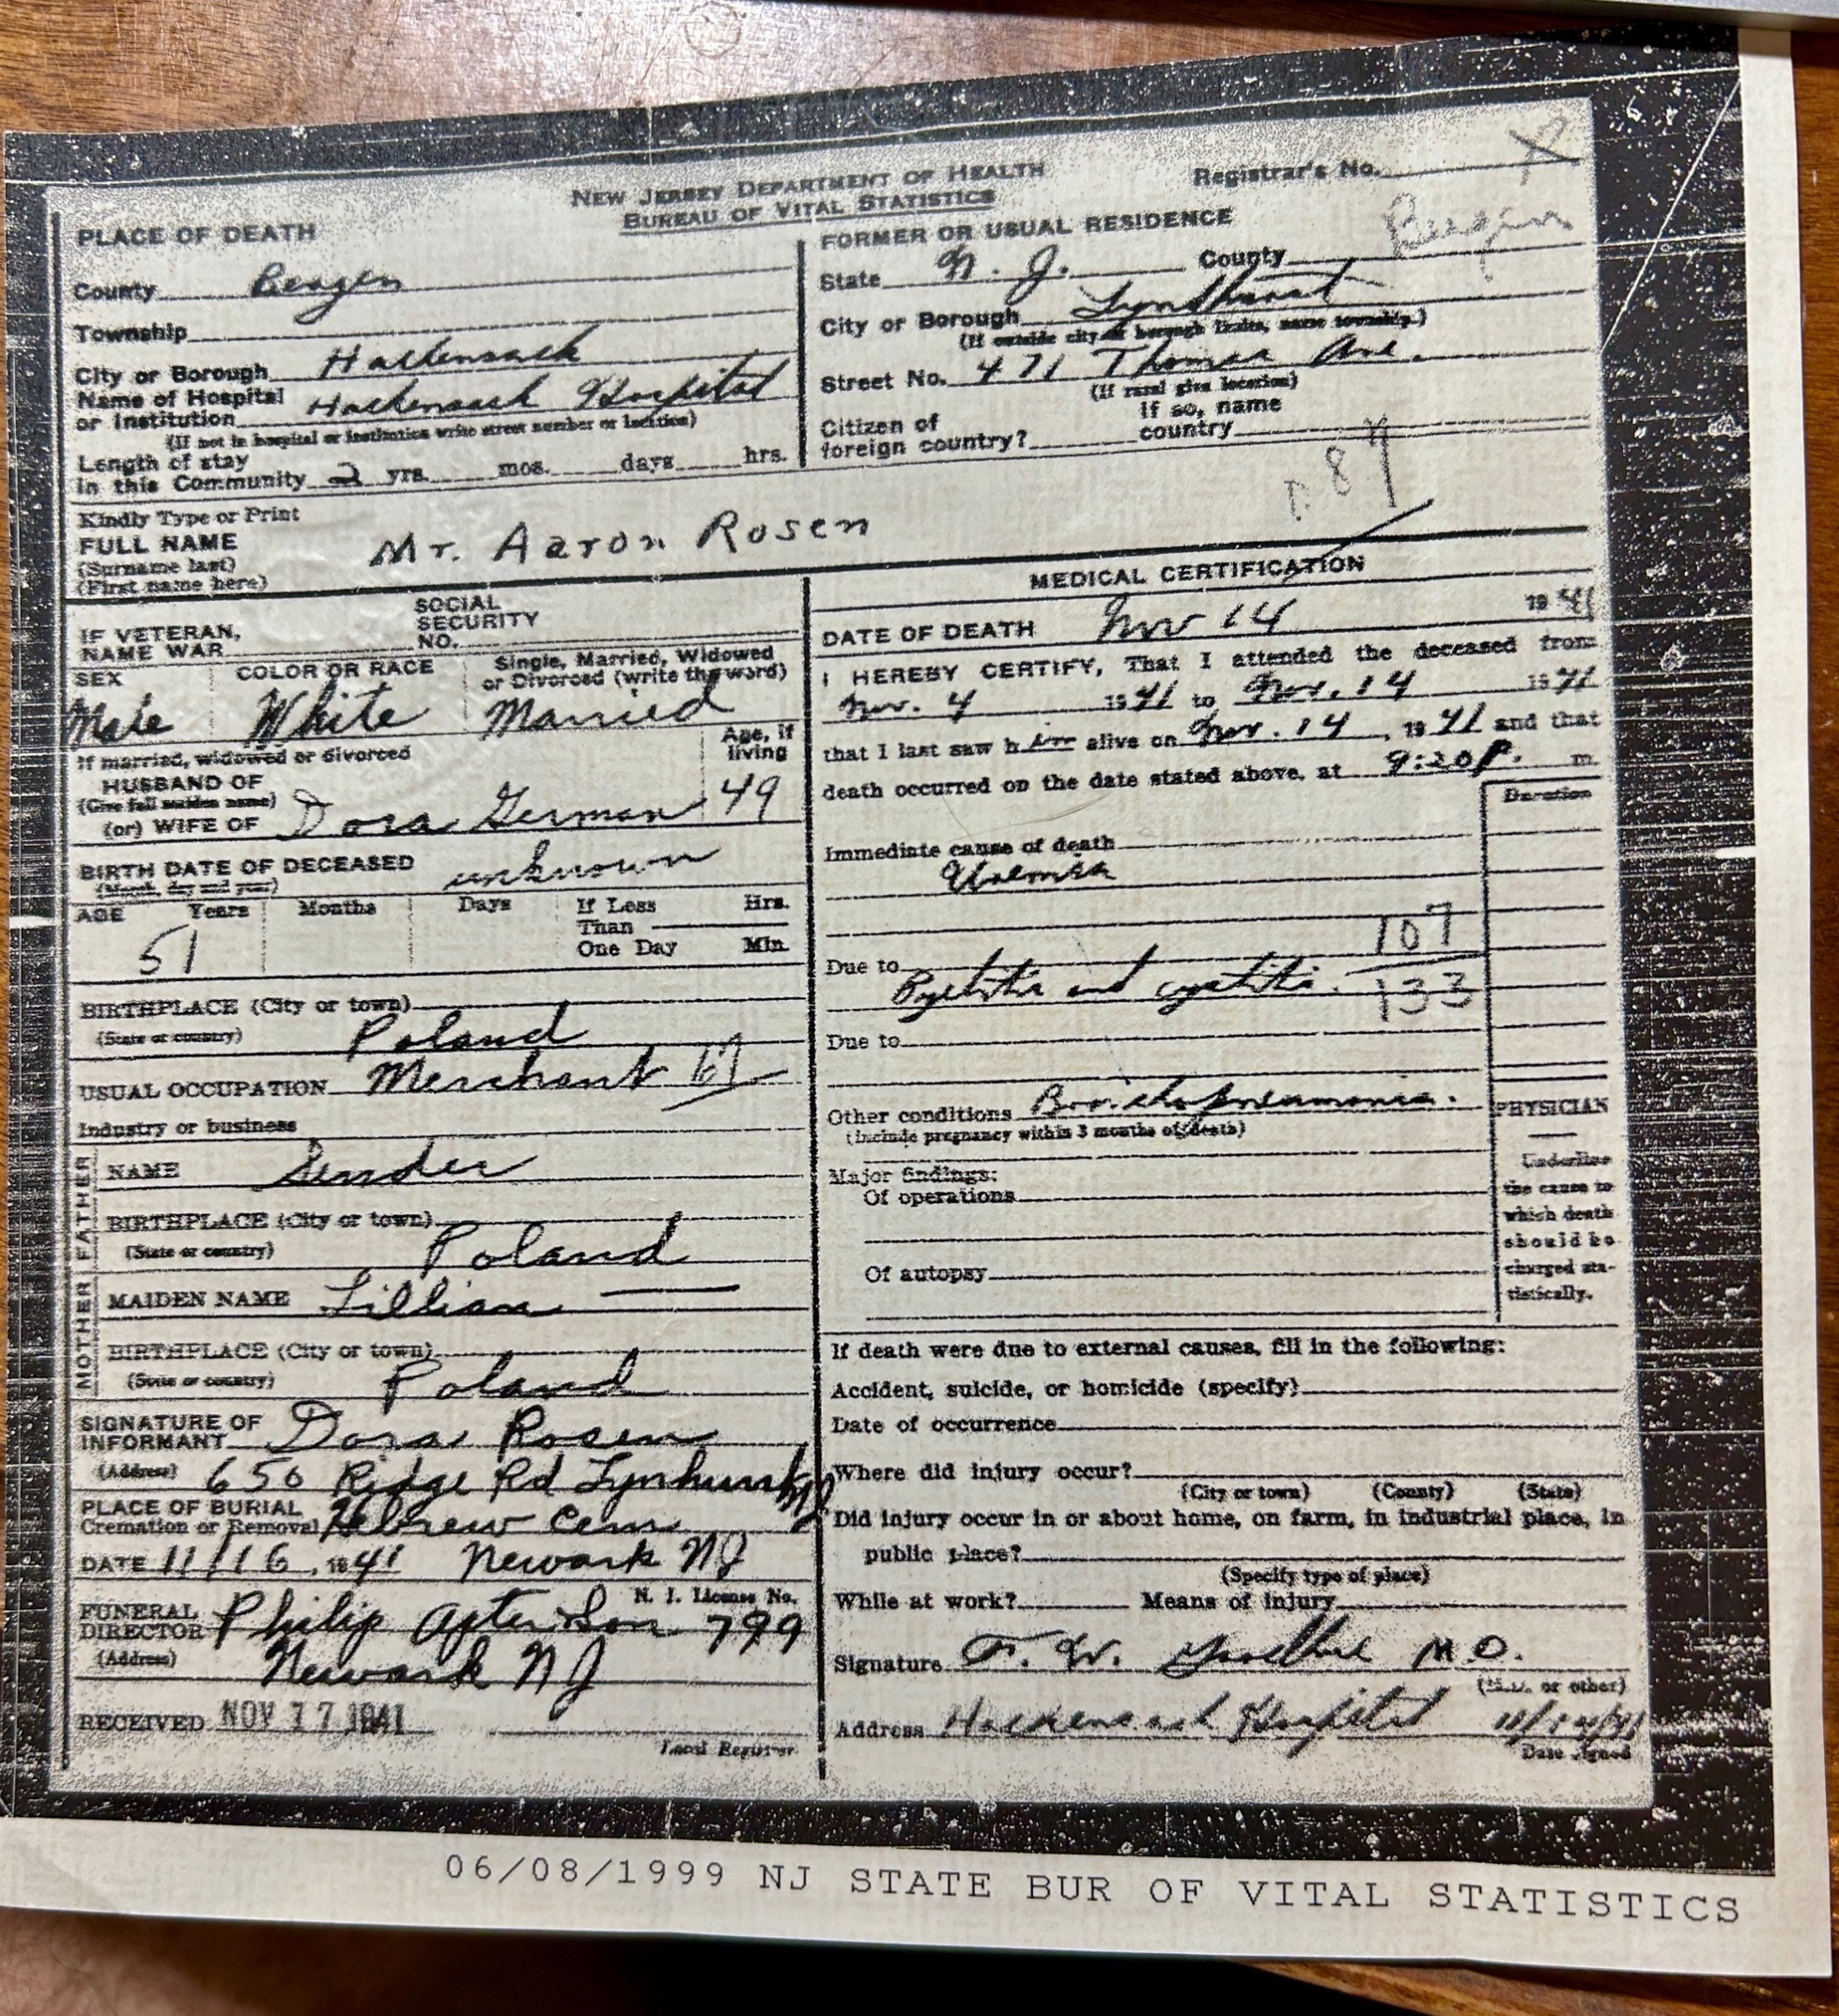 NEW JERSEY DEPARTMENT OF HEALTH
BUREAU OF VITAL STATISTICS
Registrar's No.
PLACE OF DEATH
County Bergen
Township
City or Borough Hackensack
Name of Hospital
or Institution Hackensack Hospital
(If not in hospital or institution write street number or location)
Length of stay
in this Community 2 yrs. mos. days hrs.
FORMER OR USUAL RESIDENCE
State N. J. County Bergen
City or Borough Lyndhurst
(If outside city or borough limits, name township.)
Street No. 471 Thomas Ave.
(If rural give location)
Citizen of If so, name
foreign country? country
Kindly Type or Print
FULL NAME Mr. Aaron Rosen
(Surname last)
(First name here)
IF VETERAN,
NAME WAR
SOCIAL
SECURITY
NO.
SEX
Male
COLOR OR RACE
White
Single, Married, Widowed
or Divorced (write the word)
Married
If married, widowed or divorced
HUSBAND OF
(Give full maiden name)
(or) WIFE OF Dora German
Age, if
living
49
BIRTH DATE OF DECEASED unknown
(Month, day and year)
AGE Years Months Days If Less Hrs.
Than
One Day Min.
51
BIRTHPLACE (City or town)
(State or country) Poland
USUAL OCCUPATION Merchant
Industry or business
FATHER
NAME Sender
BIRTHPLACE (City or town)
(State or country) Poland
MOTHER
MAIDEN NAME Lillian
BIRTHPLACE (City or town)
(State or country) Poland
SIGNATURE OF
INFORMANT Dora Rosen
(Address) 650 Ridge Rd Lynhurst NJ
PLACE OF BURIAL
Cremation or Removal Hebrew Cem
DATE 11/16, 1941 Newark NJ
FUNERAL N. J. License No.
DIRECTOR Philip Apter & Son 799
(Address) Newark NJ
RECEIVED NOV 17 1941
Local Registrar
MEDICAL CERTIFICATION
DATE OF DEATH Nov 14 1941
I HEREBY CERTIFY, That I attended the deceased from
Nov. 4 1941 to Nov. 14 1941
that I last saw him alive on Nov. 14, 1941 and that
death occurred on the date stated above, at 9:20 P. m.
Duration
Immediate cause of death
Uremia
107
133
Due to
Pyelitis and cystitis.
Due to
Other conditions Bronchopneumonia.
(Include pregnancy within 3 months of death)
Major findings:
Of operations
Of autopsy
PHYSICIAN
Underline
the cause to
which death
should be
charged sta-
tistically.
If death were due to external causes, fill in the following:
Accident, suicide, or homicide (specify)
Date of occurrence
Where did injury occur?
(City or town) (County) (State)
Did injury occur in or about home, on farm, in industrial place, in
public place?
(Specify type of place)
While at work? Means of injury
Signature F. W. M.D.
(M.D. or other)
Address Hackensack Hospital
Date signed
06/08/1999 NJ STATE BUR OF VITAL STATISTICS